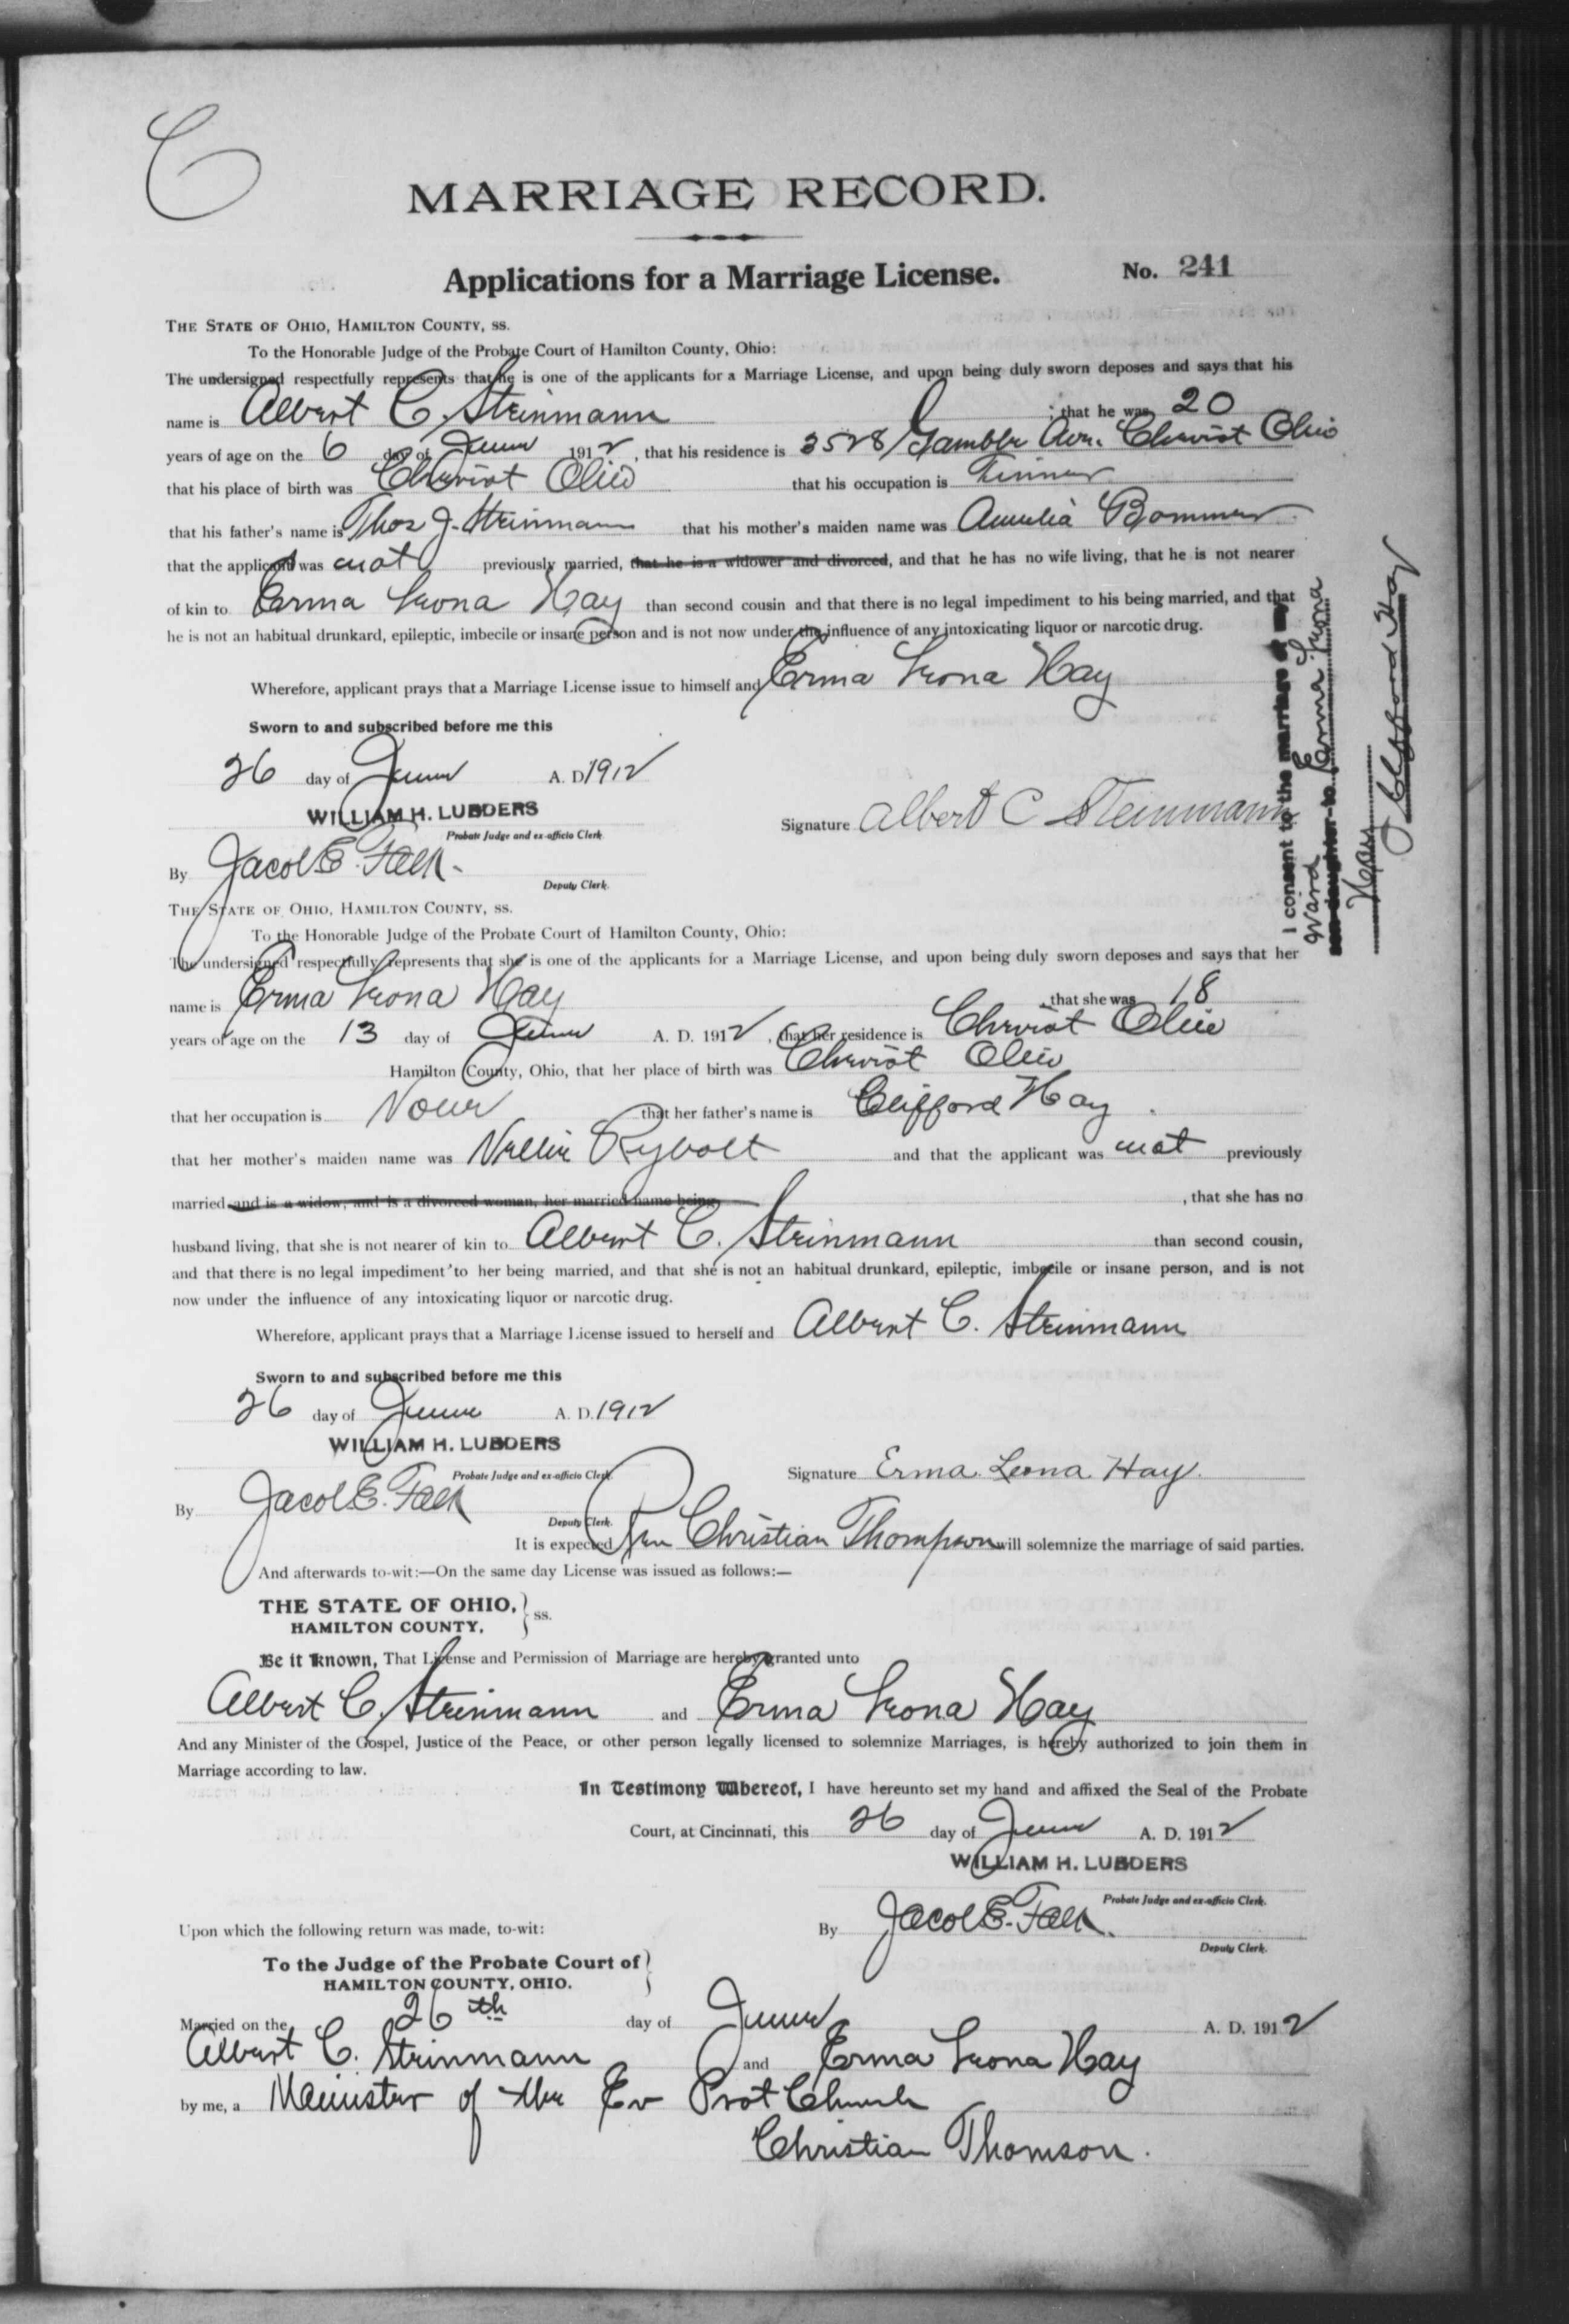 C
MARRIAGE RECORD.
Applications for a Marriage License. No. 241
THE STATE OF OHIO, HAMILTON COUNTY, ss.
To the Honorable Judge of the Probate Court of Hamilton County, Ohio:
The undersigned respectfully represents that he is one of the applicants for a Marriage License, and upon being duly sworn deposes and says that his
name is Albert C. Steinmann ; that he was 20
years of age on the 6 day of June 1912, that his residence is 3528 Gamble Ave. Cheviot Ohio
that his place of birth was Cheviot Ohio that his occupation is Tinner
that his father's name is Thos J. Steinmann that his mother's maiden name was Amelia Bommer
that the applicant was not previously married, that he is a widower and divorced, and that he has no wife living, that he is not nearer
of kin to Erma Leona Hay than second cousin and that there is no legal impediment to his being married, and that
he is not an habitual drunkard, epileptic, imbecile or insane person and is not now under the influence of any intoxicating liquor or narcotic drug.
Wherefore, applicant prays that a Marriage License issue to himself and Erma Leona Hay
Sworn to and subscribed before me this
26 day of June A. D. 1912
WILLIAM H. LUEDERS
Probate Judge and ex-officio Clerk
Signature Albert C Steinmann
By Jacob E. Falk
Deputy Clerk.
I consent to the marriage of my
ward Erma Leona
son daughter to
Hay
Clifford Hay
THE STATE OF OHIO, HAMILTON COUNTY, ss.
To the Honorable Judge of the Probate Court of Hamilton County, Ohio:
The undersigned respectfully represents that she is one of the applicants for a Marriage License, and upon being duly sworn deposes and says that her
name is Erma Leona Hay , that she was 18
years of age on the 13 day of June A. D. 1912, that her residence is Cheviot Ohio
Hamilton County, Ohio, that her place of birth was Cheviot Ohio
that her occupation is None that her father's name is Clifford Hay
that her mother's maiden name was Nellie Rybolt and that the applicant was not previously
married and is a widow, and is a divorced woman, her married name being , that she has no
husband living, that she is not nearer of kin to Albert C. Steinmann than second cousin,
and that there is no legal impediment to her being married, and that she is not an habitual drunkard, epileptic, imbecile or insane person, and is not
now under the influence of any intoxicating liquor or narcotic drug.
Wherefore, applicant prays that a Marriage License issued to herself and Albert C. Steinmann
Sworn to and subscribed before me this
26 day of June A. D. 1912
WILLIAM H. LUEDERS
Probate Judge and ex-officio Clerk.
Signature Erma Leona Hay.
By Jacob E. Falk
Deputy Clerk.
It is expected Rev Christian Thompson will solemnize the marriage of said parties.
And afterwards to-wit:—On the same day License was issued as follows:—
THE STATE OF OHIO, } ss.
HAMILTON COUNTY.
Be it known, That License and Permission of Marriage are hereby granted unto
Albert C. Steinmann and Erma Leona Hay
And any Minister of the Gospel, Justice of the Peace, or other person legally licensed to solemnize Marriages, is hereby authorized to join them in
Marriage according to law.
In Testimony Whereof, I have hereunto set my hand and affixed the Seal of the Probate
Court, at Cincinnati, this 26 day of June A. D. 1912
WILLIAM H. LUEDERS
Probate Judge and ex-officio Clerk.
Upon which the following return was made, to-wit: By Jacob E. Falk
Deputy Clerk.
To the Judge of the Probate Court of }
HAMILTON COUNTY, OHIO.
Married on the 26th day of June A. D. 1912
Albert C. Steinmann and Erma Leona Hay
by me, a Minister of the Ev Prot Church
Christian Thomson.